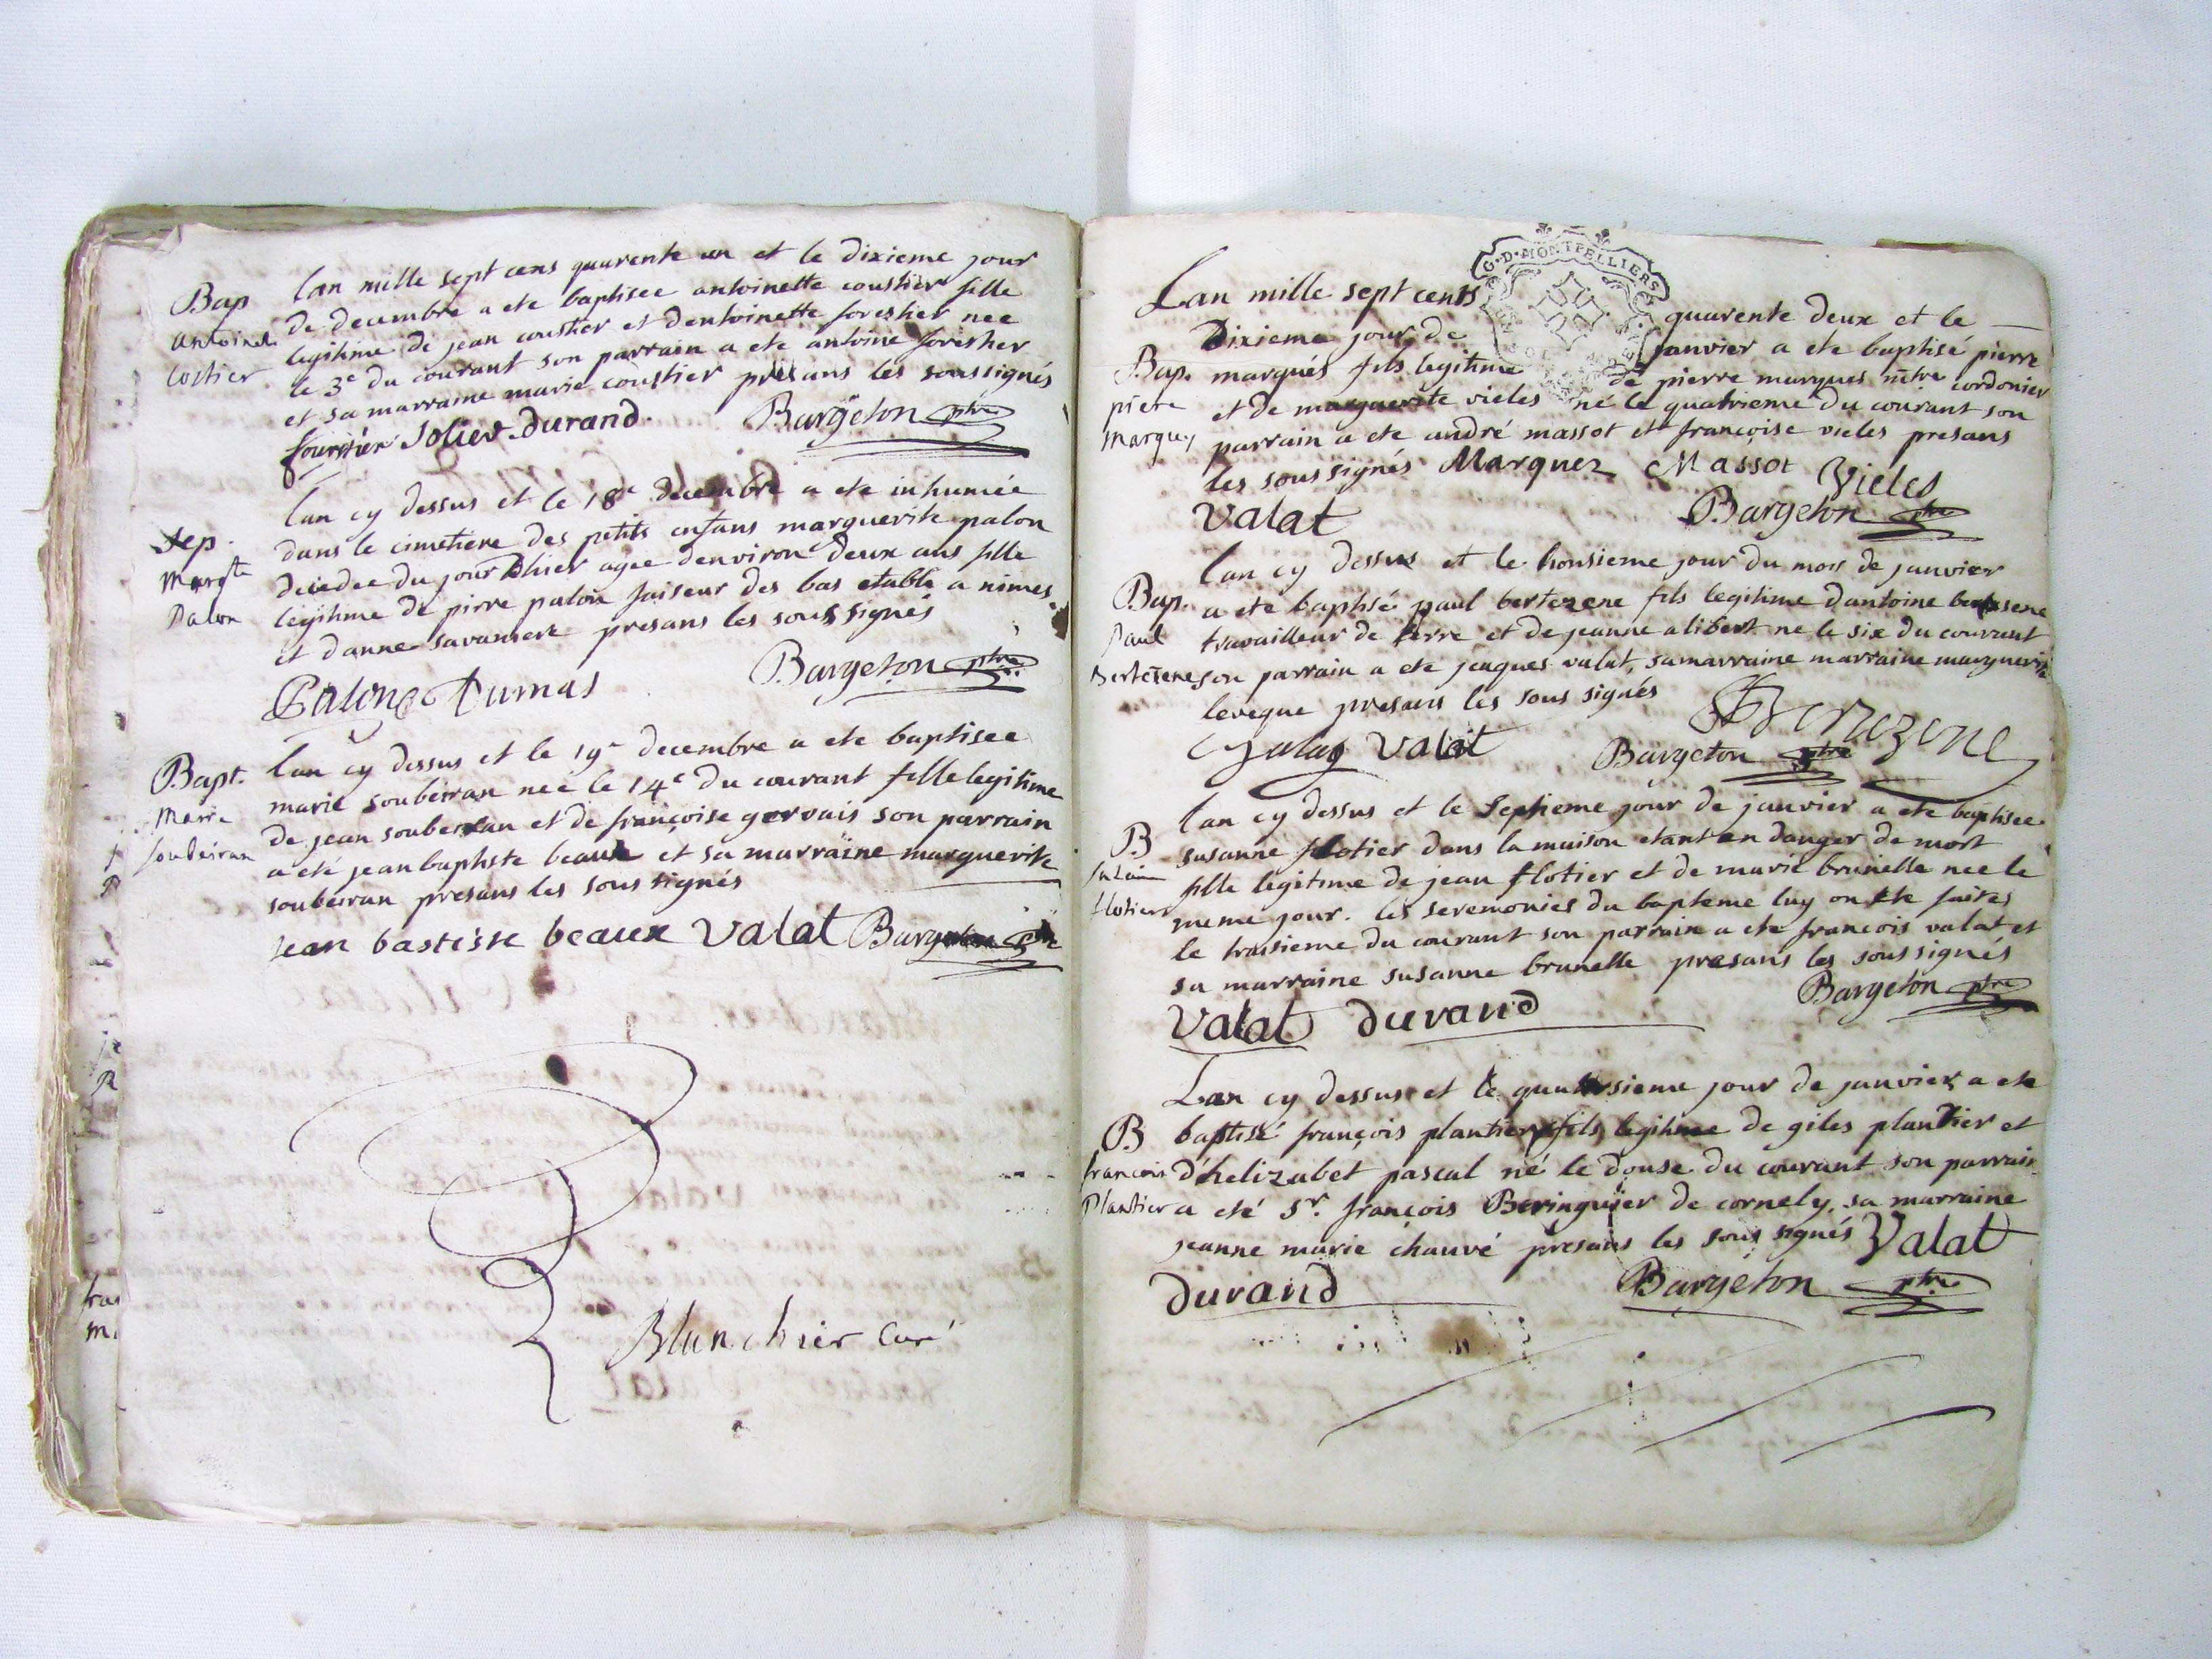 Bap
antoinet
Costier
lan mille sept cens quarente un et le dixieme jour
de decembre a ete baptisee antoinette coustier fille
legitime de jean coustier et dentoinette forestier nee
le 3e du courant son parrain a ete antoine forestier
et sa marraine marie coustier presans les soussignés
fourrier Solier Durand. Bargeton ptre
Sep.
Margte
Palon
lan cy dessus et le 18e decembre a ete inhumée
dans le cimetiere des petits enfans marguerite palon
decedee du jour dhier agee denviron deux ans fille
legitime de pirre palon faiseur des bas etabli a nimes
et danne savaniere presans les soussignés
Palon Dumas Bargeton ptre
Bapt.
Marie
soubeiran
lan cy dessus et le 19e decembre a ete baptisee
marie soubeiran nee le 14e du courant fille legitime
de jean soubeiran et de françoise gervais son parrain
a eté jean baptiste beaux et sa marraine marguerite
soubeiran presans les sous signés
jean bastisse beaux Valat Bargeton ptre
Blanchier Curé
G·D·MONTPELLIER
Lan mille sept cents quarente deux et le
Dixieme jour de janvier a ete baptisé pierre
Bap.
piere
Marques
marqués fils legitime de pierre marques mtre cordonier
et de marguerite vieles né le quatrieme du courant son
parrain a ete andré massot et françoise vieles presans
les soussignés Marquez Massot Vieles
Valat Bargeton ptre
lan cy dessus et le honsieme jour du mois de janvier
Bap.
Paul
Bertezene
a ete baptisé paul bertezene fils legitime dantoine bertesene
travailleur de terre et de jeanne alibert ne le six du courant
son parrain a ete jaques valat, sa marraine marraine marguerite
leveque presans les sous signés
Valat Bertezene
Bargeton ptre
lan cy dessus et le septieme jour de janvier a ete baptisee
B
flotier
susanne flotier dans la maison etant en danger de mort
fille legitime de jean flotier et de marie brunelle nee le
meme jour. les seremonies du bapteme luy on ete faites
le traisieme du courant son parrain a ete francois valat et
sa marraine susanne brunelle presans les soussignés
Valat Durand Bargeton ptre
Lan cy dessus et le quatorsieme jour de janvier a ete
B
francois
Plantier
baptisé françois plantier fils legitime de giles plantier et
d'helizabet pascal né le douse du courant son parrain
a eté Sr. françois Beringuier de cornely. sa marraine
jeanne marie chauvé presans les sous signés Valat
Durand Bargeton ptre